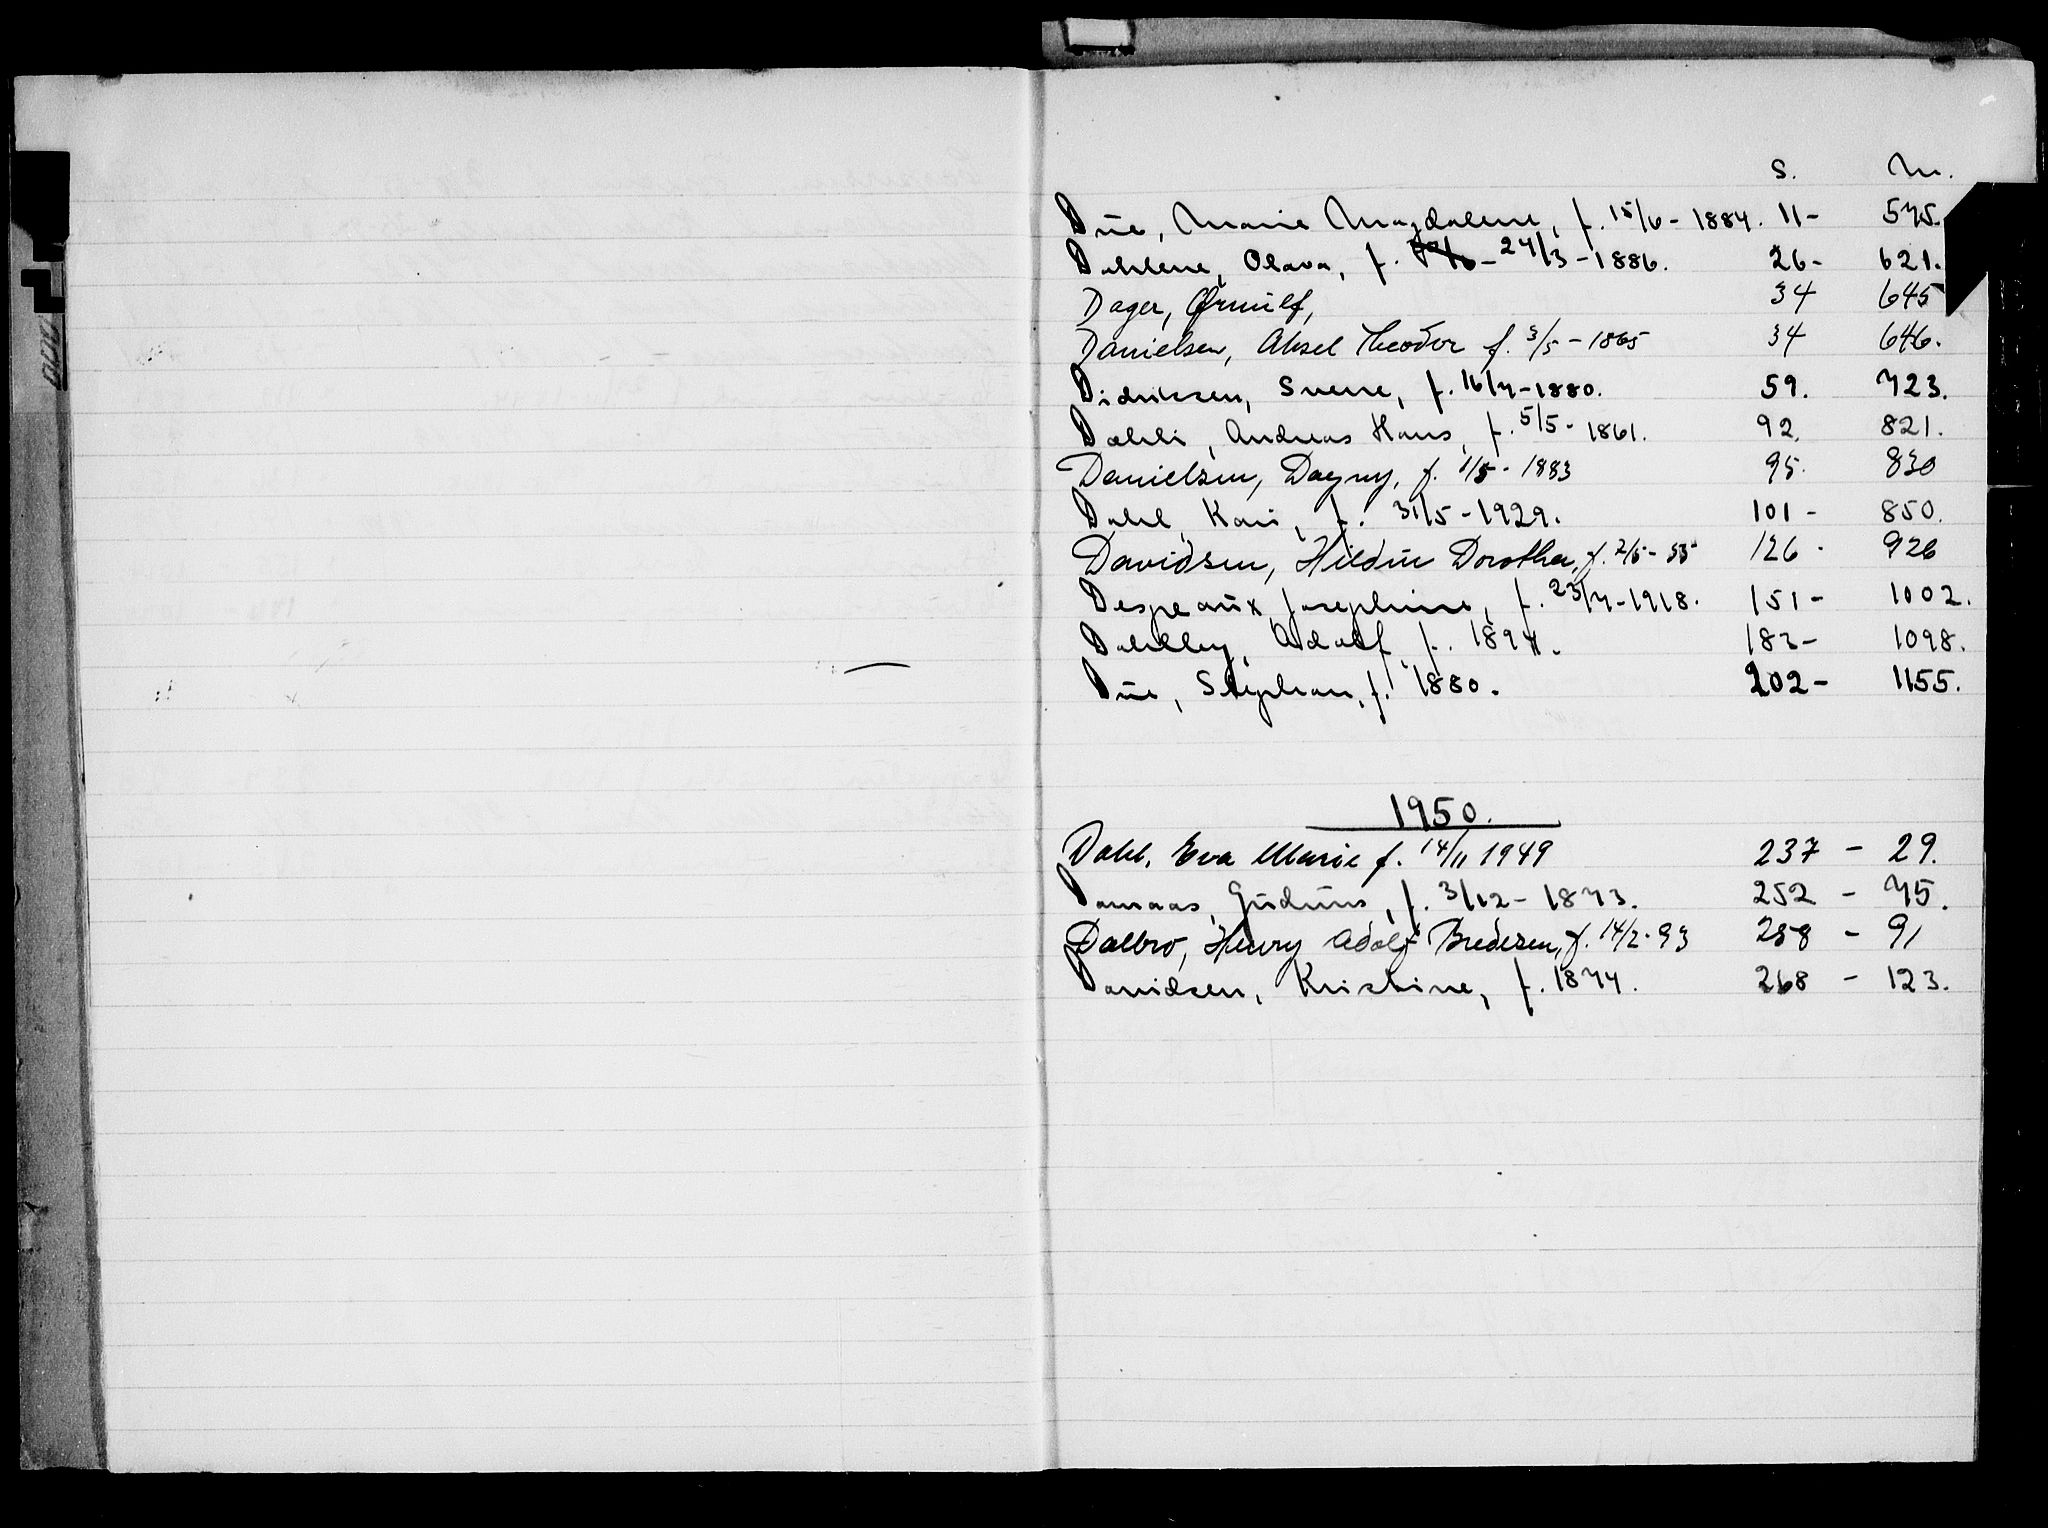 S. Nr.
Due, Marie Magdalene, f. 15/6 - 1884. 11 - 575.
Dahlene, Olava, f. 24/3 - 1886. 26 - 621.
Dager, Ørnulf, 34 645
Danielsen, Aksel Theodor f. 3/5 - 1865 34 646.
Didriksen, Sverre, f. 16/7 - 1880. 59. 723.
Dæhli, Andreas Hans, f. 5/5 - 1861. 92. 821.
Danielsen, Dagny, f. 1/5 - 1883 95. 830
Dahl, Kari, f. 31/5 - 1929. 101 - 850.
Davidsen, Hildur Dorothea, f. 2/5 - 126 - 926
Despeaux, Josephine, f. 23/7 - 1918. 151 - 1002.
Dahlby, Adolf, f. 1897. 183 - 1098.
Due, Stephan, f. 1880. 202 - 1155.
1950.
Dahl, Eva Marie f. 14/11 1949 237 - 29.
Damaas, Gudrun, f. 3/12 - 1873. 252 - 75.
Dalbro, Henry Adolf Bredesen, f. 14/2 - 93 258 - 91
Davidsen, Kristine, f. 1874. 268 - 123.